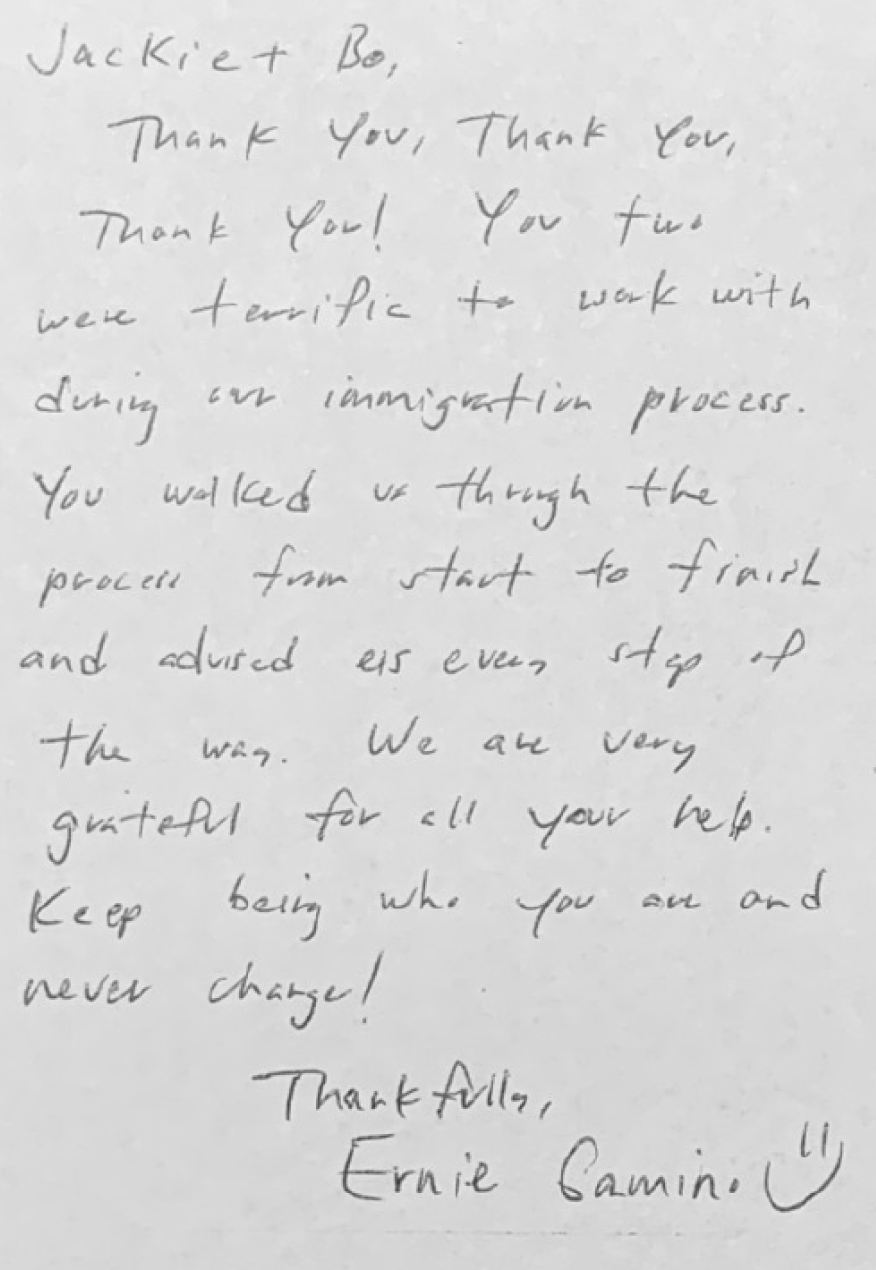 Jackie + Bo,
Thank You, Thank You,
Thank You! You two
were terrific to work with
during our immigration process.
You walked us through the
process from start to finish
and advised us every step of
the way. We are very
grateful for all your help.
Keep being who you are and
never change!
Thankfully,
Ernie Gamino